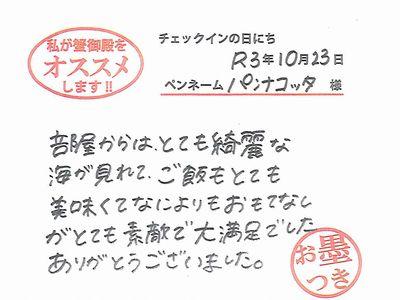 私が蟹御殿を
オススメ
します!!
チェックインの日にち
R3年10月23日
ペンネーム パンナコッタ 様
部屋からは、とても綺麗な
海が見れて、ご飯もとても
美味くてなによりもおもてなし
がとても素敵で大満足でした
ありがとうございました。
お墨
つき